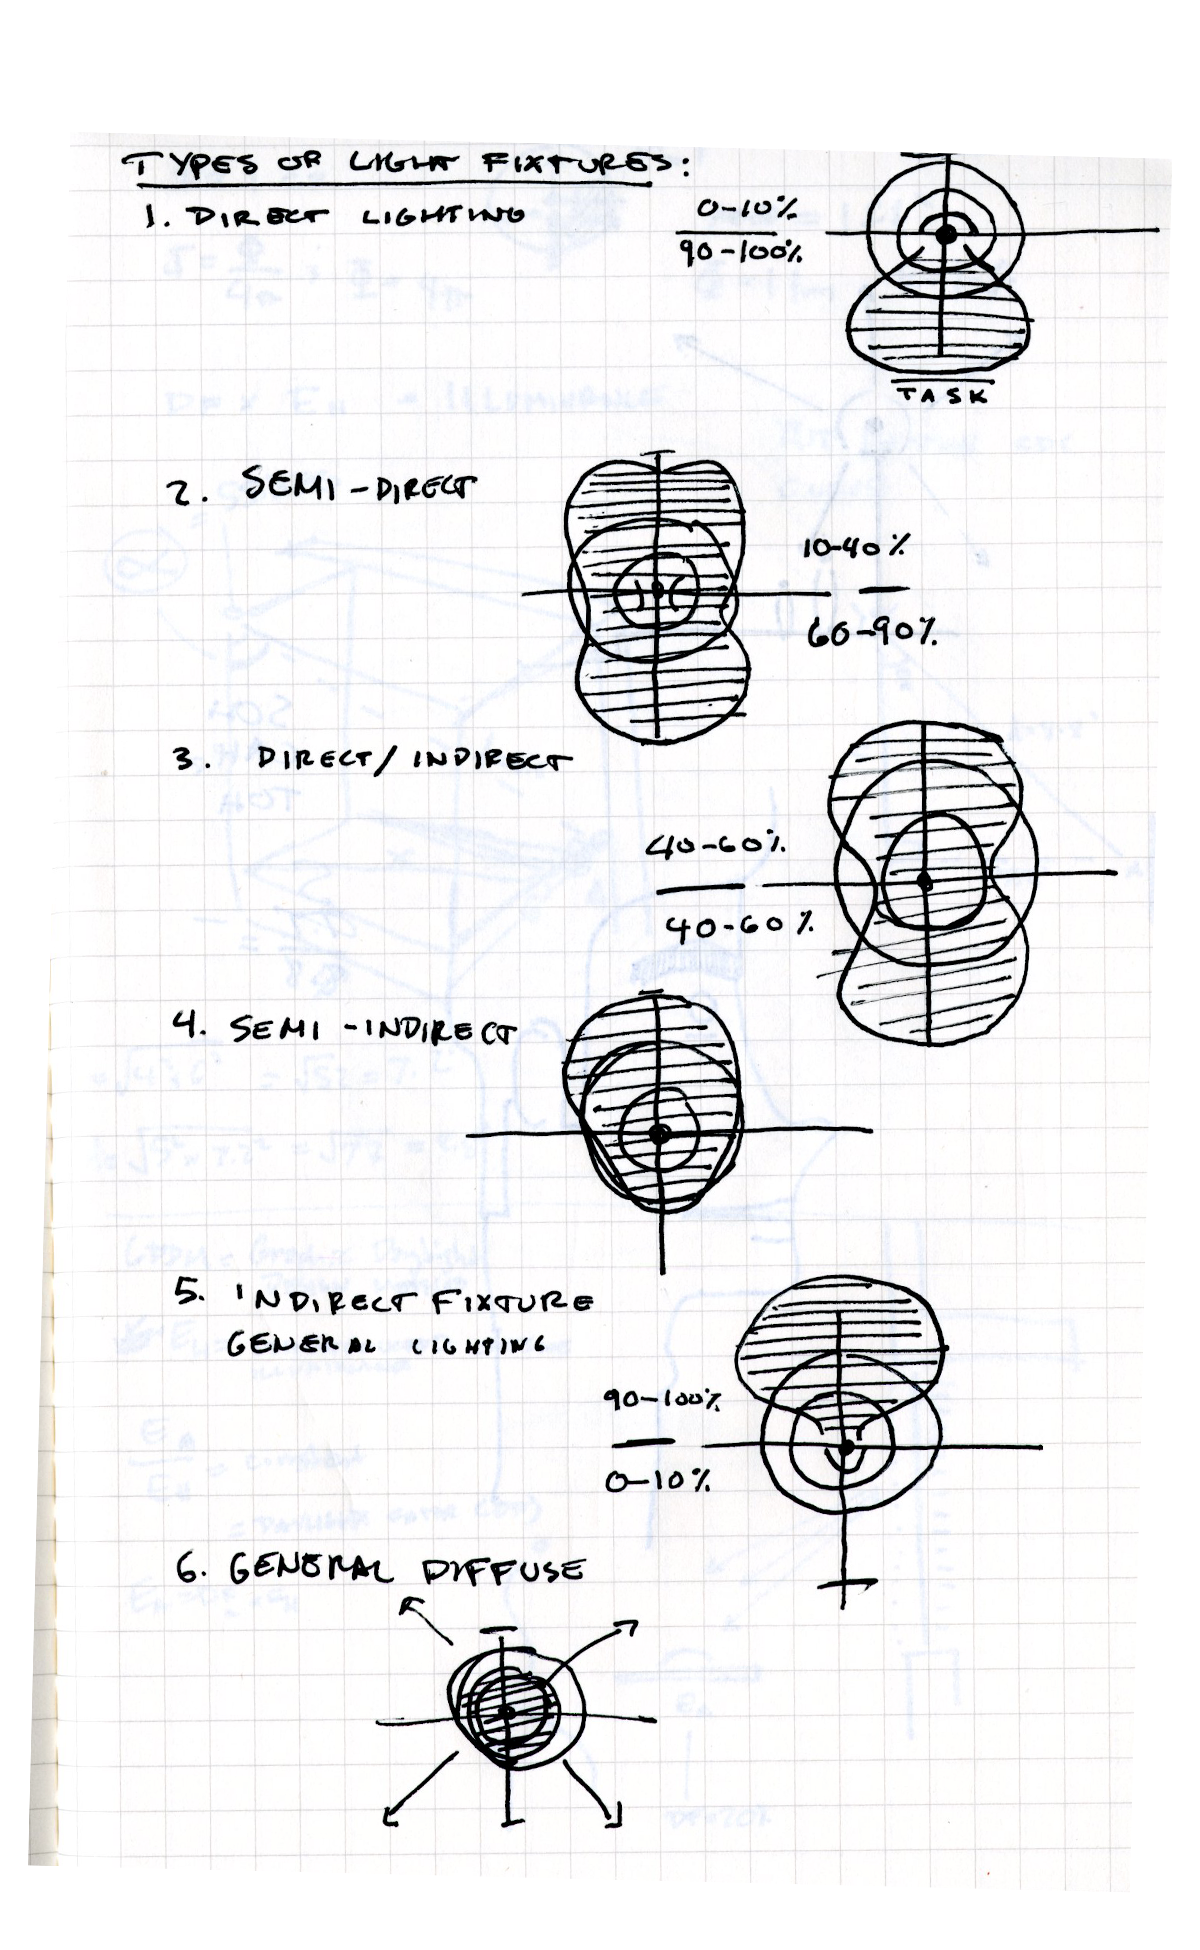 TYPES OF LIGHT FIXTURES:
1. DIRECT LIGHTING
0-10%
90-100%
TASK
2. SEMI-DIRECT
10-40%
60-90%
3. DIRECT/INDIRECT
40-60%
40-60%
4. SEMI-INDIRECT
5. INDIRECT FIXTURE
GENERAL LIGHTING
90-100%
0-10%
6. GENERAL DIFFUSE